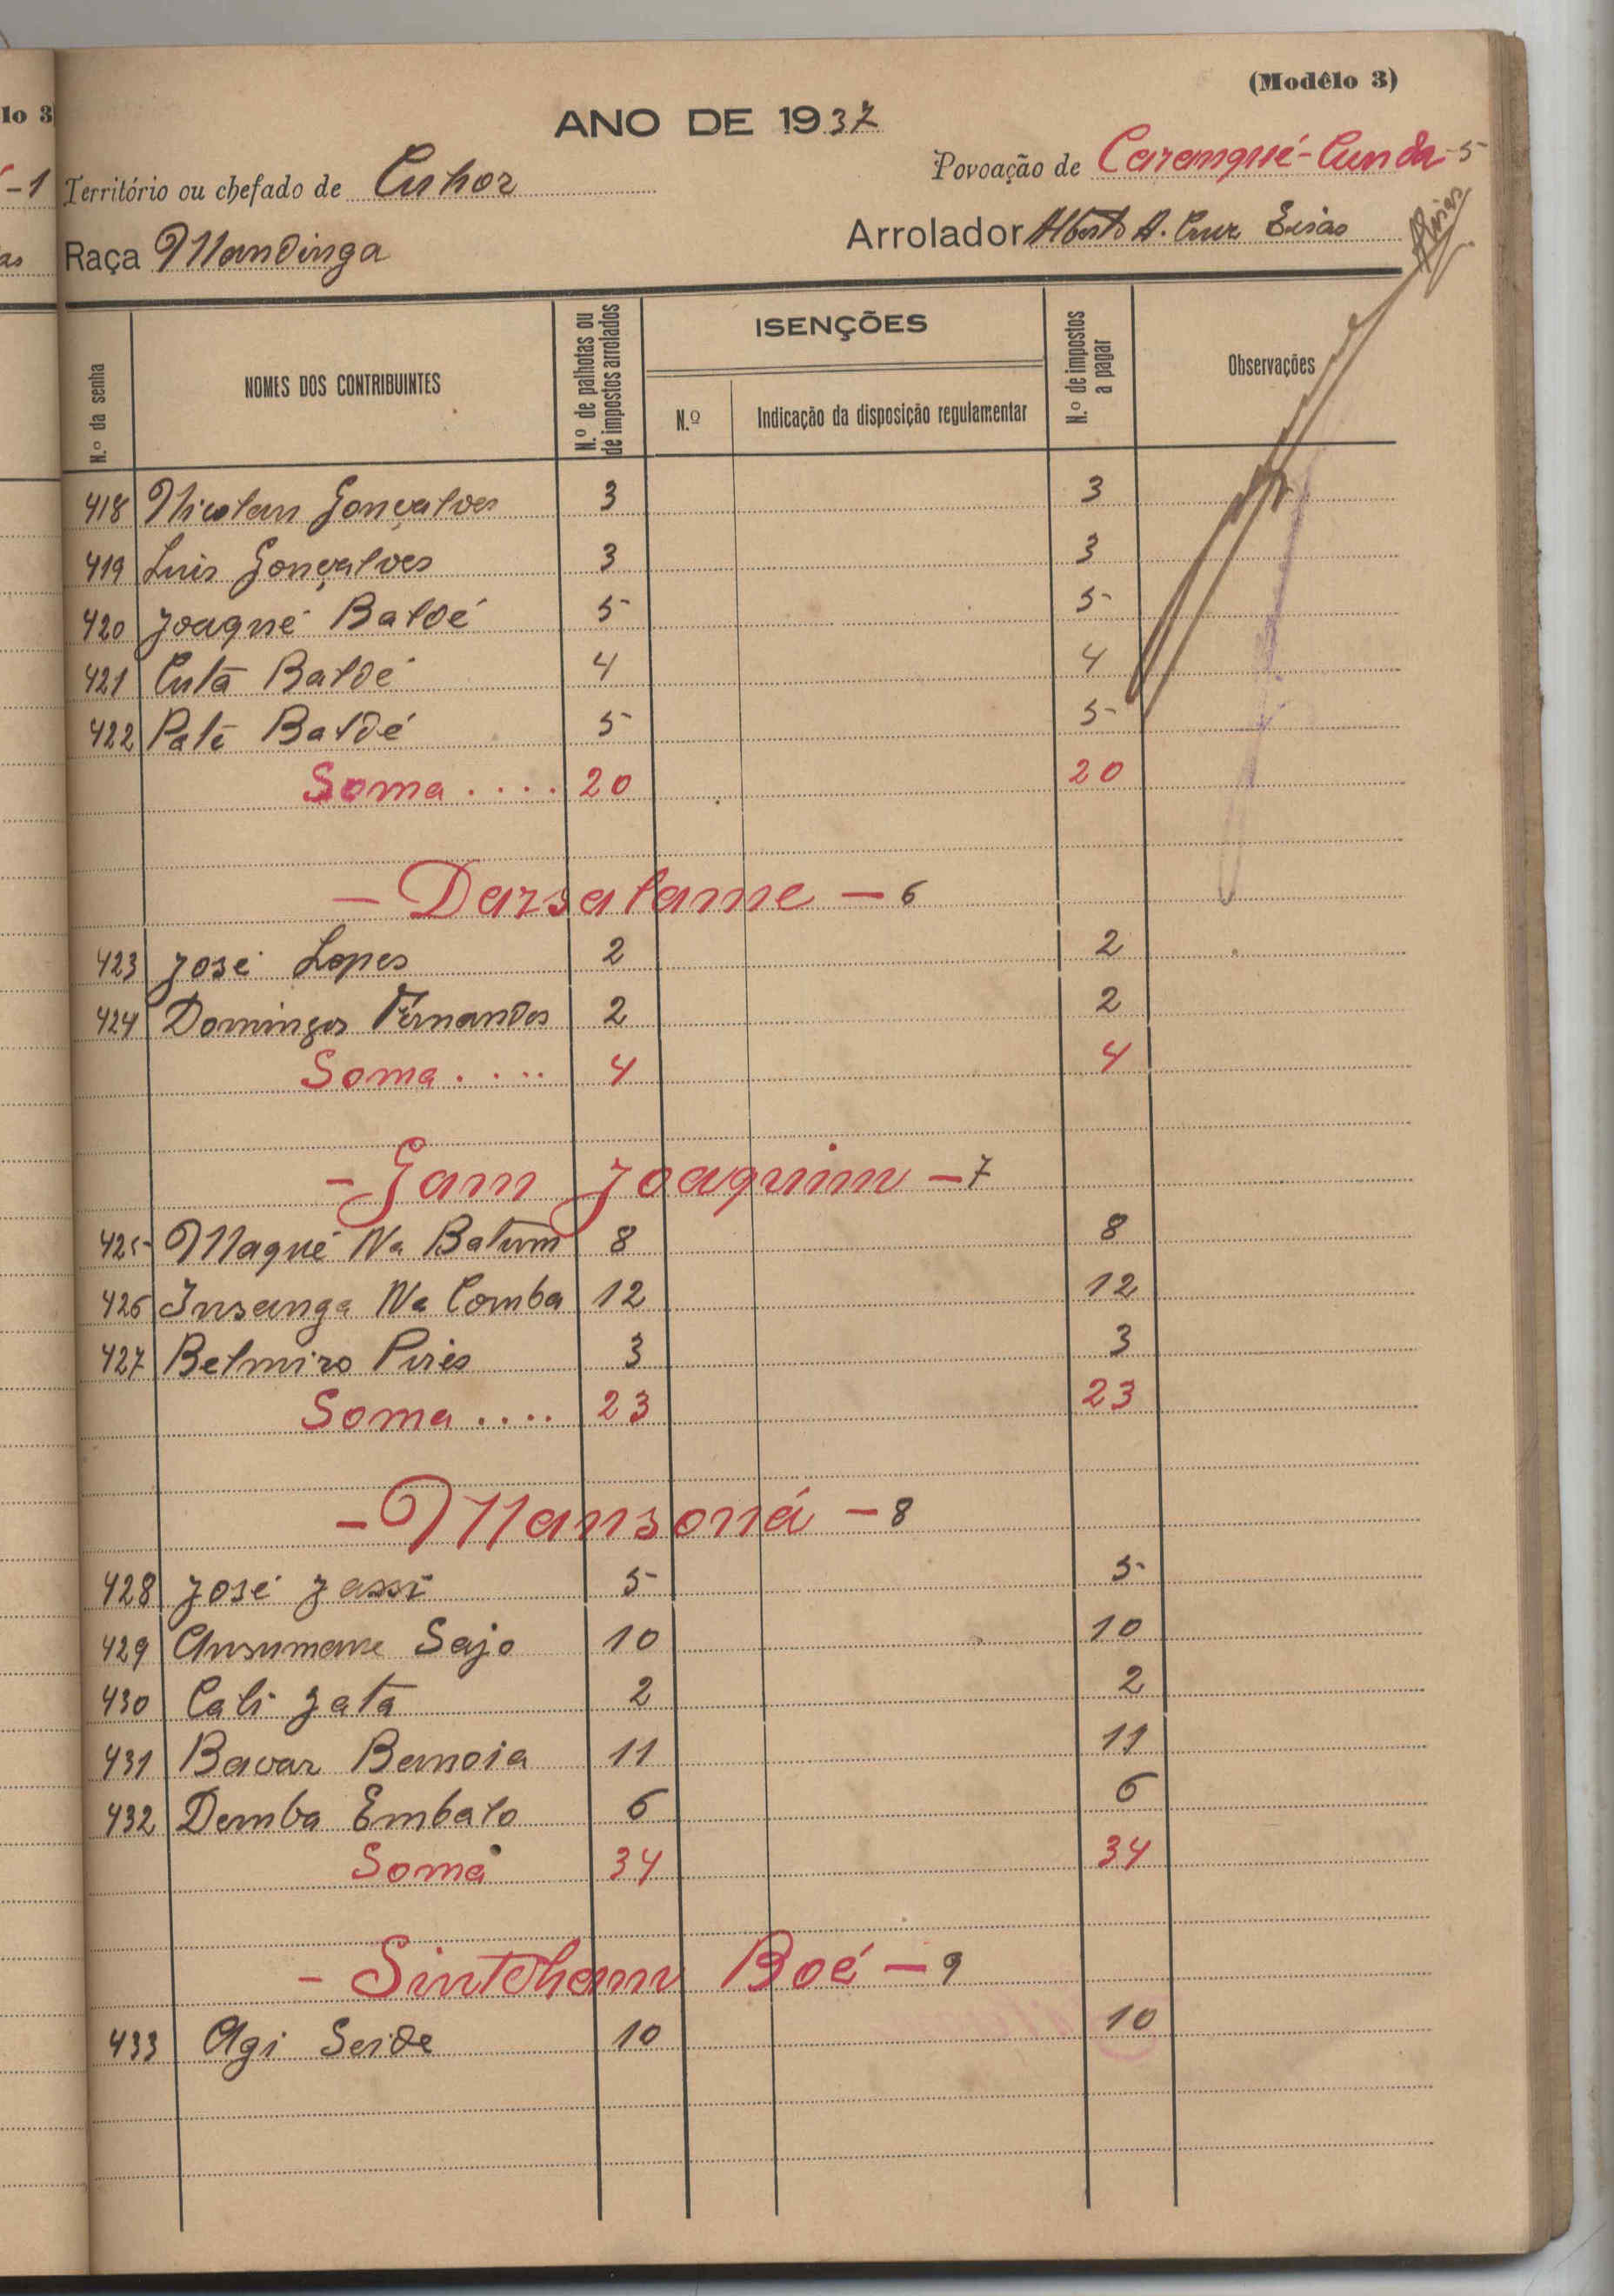 lo 3
(Modêlo 3)
ANO DE 1937
-1 Território ou chefado de Cuhor
Povoação de Caranqué-Cunda-5
as Raça Mandinga
Arrolador Alberto A. Cruz
N.º da senha
NOMES DOS CONTRIBUINTES
N.º de palhotas ou de impostos arrolados
ISENÇÕES
N.º
Indicação da disposição regulamentar
N.º de impostos a pagar
Observações
418 Nicolau Gonçalves 3 3
419 Luis Gonçalves 3 3
420 Joaqué Baldé 5 5
421 Cutá Baldé 4 4
422 Paté Baldé 5 5
Soma .... 20 20
- Darsalame - 6
423 José Lopes 2 2
424 Domingos Fernandes 2 2
Soma .... 4 4
- Gam Joaquim - 7
425 Maqué Na Batum 8 8
426 Insanga Na Comba 12 12
427 Belmiro Pires 3 3
Soma .... 23 23
- Mansoná - 8
428 José Jassi 5 5
429 Ansumane Sajo 10 10
430 Cali Jatá 2 2
431 Bavar Bamoia 11 11
432 Demba Embalo 6 6
Soma 34 34
- Sintcham Boé - 9
433 Agi Seide 10 10